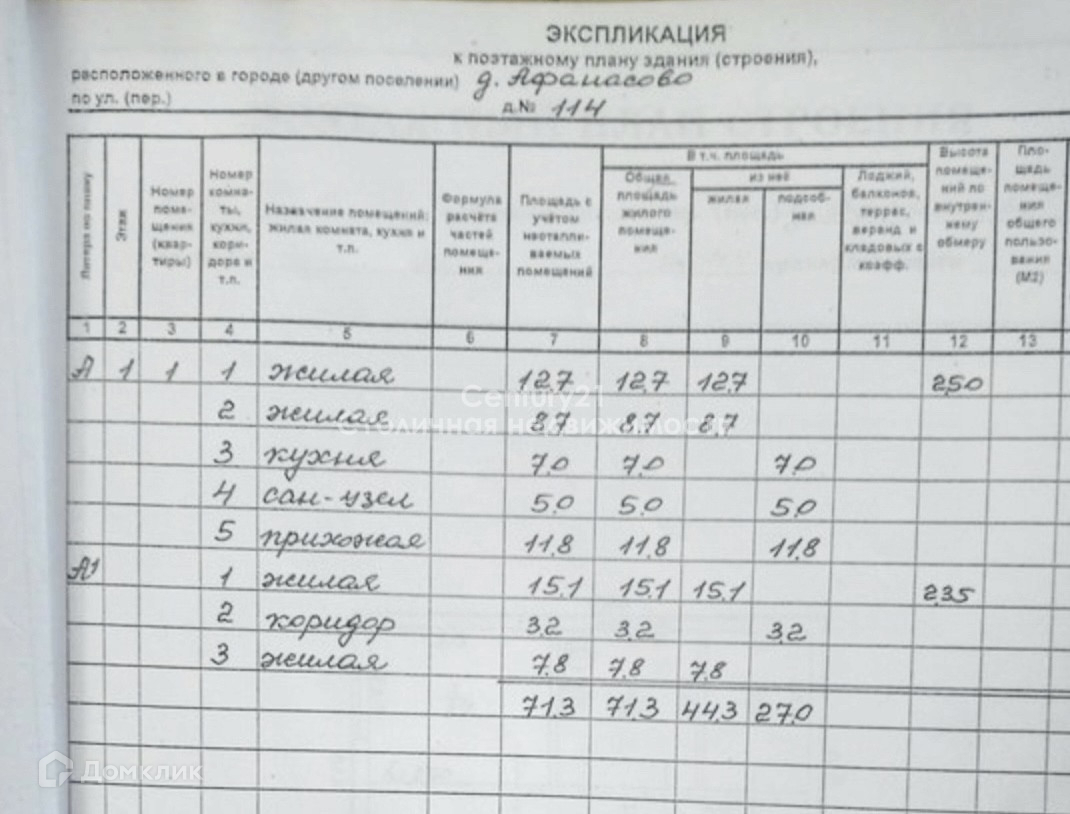 ЭКСПЛИКАЦИЯ
к поэтажному плану здания (строения),
расположенного в городе (другом поселении) д. Афанасово
по ул. (пер.) д.№ 114
Литера по плану
Этаж
Номер поме-щения (квар-тиры)
Номер комна-ты, кухни, кори-дора и т.п.
Назначение помещений: жилая комната, кухня и т.п.
Формула расчёта частей помеще-ния
Площадь с учётом неотапли-ваемых помещений
В т.ч. площадь
Общая площадь жилого помеще-ния
из неё
жилая
подсоб-ная
Лоджий, балконов, террас, веранд и кладовых с коэфф.
Высота помеще-ний по внутрен-нему обмеру
Пло-щадь помеще-ния общего пользо-вания (М2)
1 2 3 4 5 6 7 8 9 10 11 12 13
А 1 1 1 жилая 12,7 12,7 12,7 2,50
2 жилая 8,7 8,7 8,7
3 кухня 7,0 7,0 7,0
4 сан-узел 5,0 5,0 5,0
5 прихожая 11,8 11,8 11,8
А1 1 жилая 15,1 15,1 15,1 2,35
2 коридор 3,2 3,2 3,2
3 жилая 7,8 7,8 7,8
71,3 71,3 44,3 27,0
Century21
Столичная недвижимость
Домклик